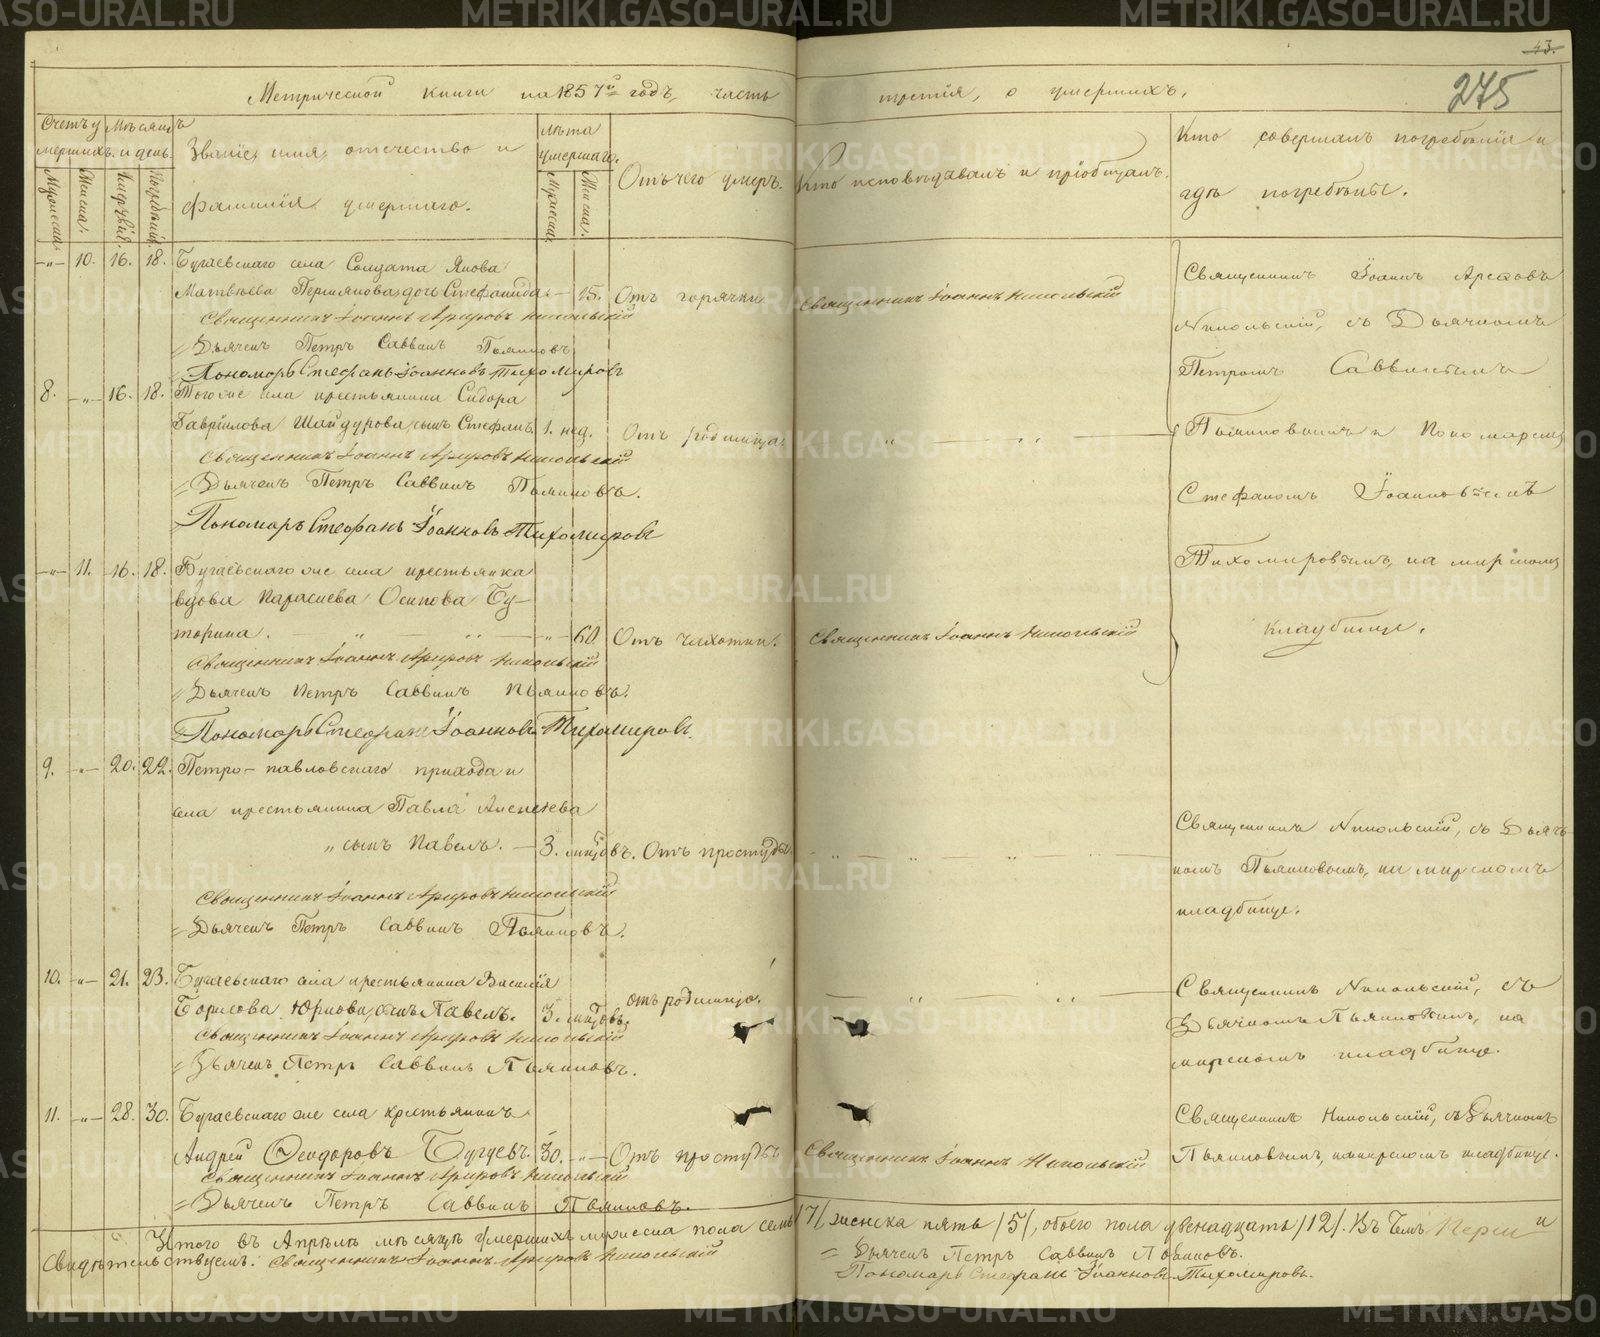 43.
275
Метрической книги на 1857й годъ, часть третія, о умершихъ.
Счетъ умершихъ.
Мѣсяцъ и день.
Званіе, имя, отечество и фамилія умершаго.
Лѣта умершаго.
Отъ чего умеръ.
Кто исповѣдавалъ и пріобщалъ.
Кто совершалъ погребеніе и
гдѣ погребены.
Мужеска. Женска.
Мужеска. Женска.
—„— 10. 16. 18. Бугаевскаго села Солдата Якова
Матвѣева Пермякова дочь Стефанида — 15. Отъ горячки Священникъ Іоаннъ Никольскій
Священникъ Іоаннъ Никольскій
Дьячекъ Петръ Саввинъ Пьянковъ
Пономарь Стефанъ Іоанновъ Тихомировъ
8. —„— 16. 18. Тогоже села крестьянина Сидора
Гавріилова Шайдурова, сынъ Стефанъ. 1. нед. Отъ родимца
Священникъ Іоаннъ Никольскій
Дьячекъ Петръ Саввинъ Пьянковъ.
Пономарь Стефанъ Іоанновъ Тихомировъ
—„— 11. 16. 18. Бугаевскаго же села крестьянка
вдова Параскева Осипова Бу-
торина. —„— 60. Отъ чахотки. Священникъ Іоаннъ Никольскій
Священникъ Іоаннъ Никольскій
Дьячекъ Петръ Саввинъ Пьянковъ.
Пономарь Стефанъ Іоанновъ Тихомировъ.
Священникъ Іоаннъ
Никольскій, съ Дьячкомъ
Петромъ Саввинымъ
Пьянковымъ и Пономаремъ
Стефаномъ Іоанновымъ
Тихомировымъ, на мирскомъ
кладбище.
9. —„— 20. 22. Петро-павловскаго прихода и
села крестьянина Павла Алексѣева
„ сынъ Павелъ. — 3. мцовъ. Отъ простуды
Священникъ Іоаннъ Никольскій
Дьячекъ Петръ Саввинъ Пьянковъ.
Священникъ Никольскій, съ Дьяч-
комъ Пьянковымъ, на мирскомъ
кладбище.
10. —„— 21. 23. Бугаевскаго села крестьянина Василія
Борисова сынъ Павелъ. 3. мцовъ. отъ родимца.
Священникъ Іоаннъ Никольскій
Дьячекъ Петръ Саввинъ Пьянковъ.
Священникъ Никольскій, съ
Дьячкомъ Пьянковымъ, на
мирскомъ кладбище.
11. —„— 28. 30. Бугаевскаго же села крестьянинъ
Андрей Ѳеодоровъ Бугуевъ. 30. —„— Отъ простуды Священникъ Іоаннъ Никольскій
Священникъ Іоаннъ Никольскій
Дьячекъ Петръ Саввинъ Пьянковъ.
Священникъ Никольскій, съ Дьячкомъ
Пьянковымъ, на мирскомъ кладбище.
Итого въ Апрѣлѣ мѣсяцѣ умершихъ мужеска пола семь /7/, женска пять /5/, обоего пола двенадцать /12/. Въ чемъ и
свидѣтельствуемъ: Священникъ Іоаннъ Никольскій
Дьячекъ Петръ Саввинъ Пьянковъ.
Пономарь Стефанъ Іоанновъ Тихомировъ.
METRIKI.GASO-URAL.RU